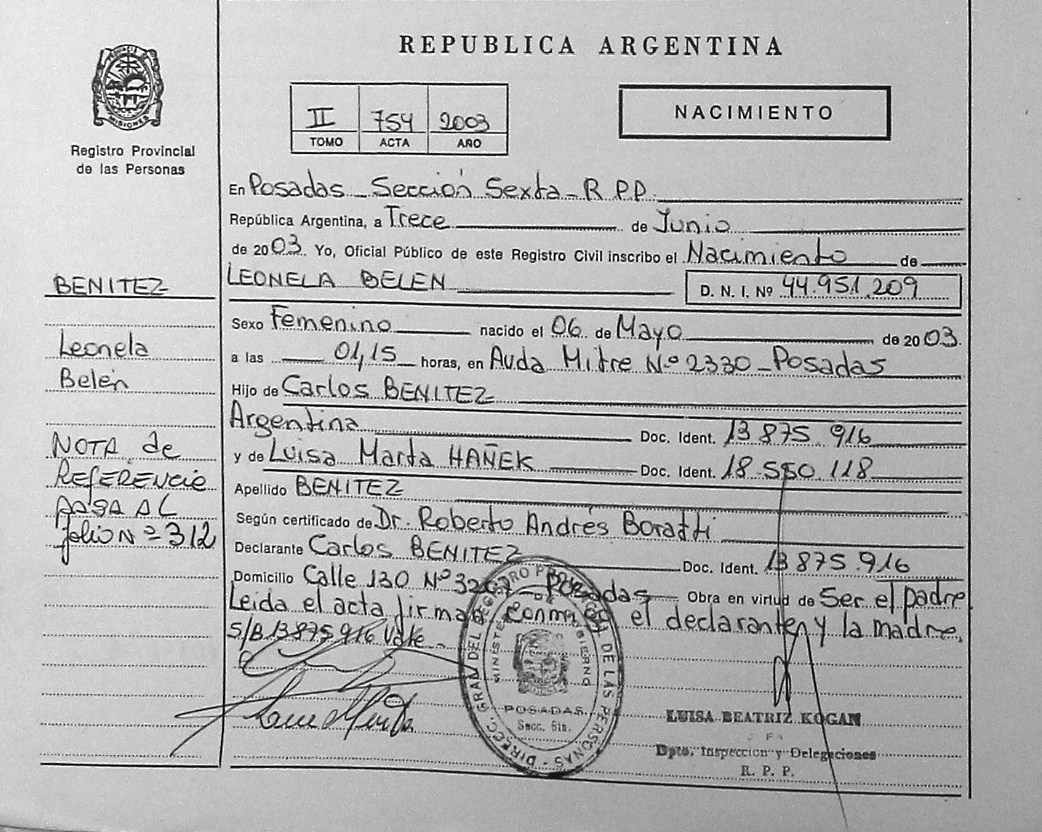 REPUBLICA ARGENTINA
PROVINCIA DE MISIONES
Registro Provincial
de las Personas
II 754 2003
TOMO ACTA AÑO
NACIMIENTO
En Posadas Sección Sexta - R.P.P.
República Argentina, a Trece de Junio
de 2003 Yo, Oficial Público de este Registro Civil inscribo el Nacimiento de
LEONELA BELEN D. N. I. Nº 44.951.209
Sexo Femenino nacido el 06 de Mayo de 2003.
a las 01,15 horas, en Avda Mitre Nº 2330 - Posadas
Hijo de Carlos BENITEZ
Argentina Doc. Ident. 13 875 916
y de Luisa Marta HAÑEK Doc. Ident. 18 550 118
Apellido BENITEZ
Según certificado de Dr. Roberto Andrés Boratti
Declarante Carlos BENITEZ Doc. Ident. 13 875.916
Domicilio Calle 130 Nº Posadas Obra en virtud de Ser el padre
Leida el acta firman conmigo el declarante y la madre.
S/B 13 875 916 Vale -
BENITEZ
Leonela
Belén
NOTA de
REFERENCIA
PASA AL
folio Nº 312
DIRECC. GRAL. DEL REGISTRO PROVINCIAL DE LAS PERSONAS
MINISTERIO GOBIERNO
POSADAS
Secc. 6ta.
LUISA BEATRIZ KOGAN
Dpto. Inspeccion y Delegaciones
R. P. P.